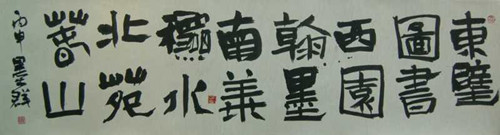 東壁
圖書
西園
翰墨
南華
龝水
北苑
萅山
丙申墨